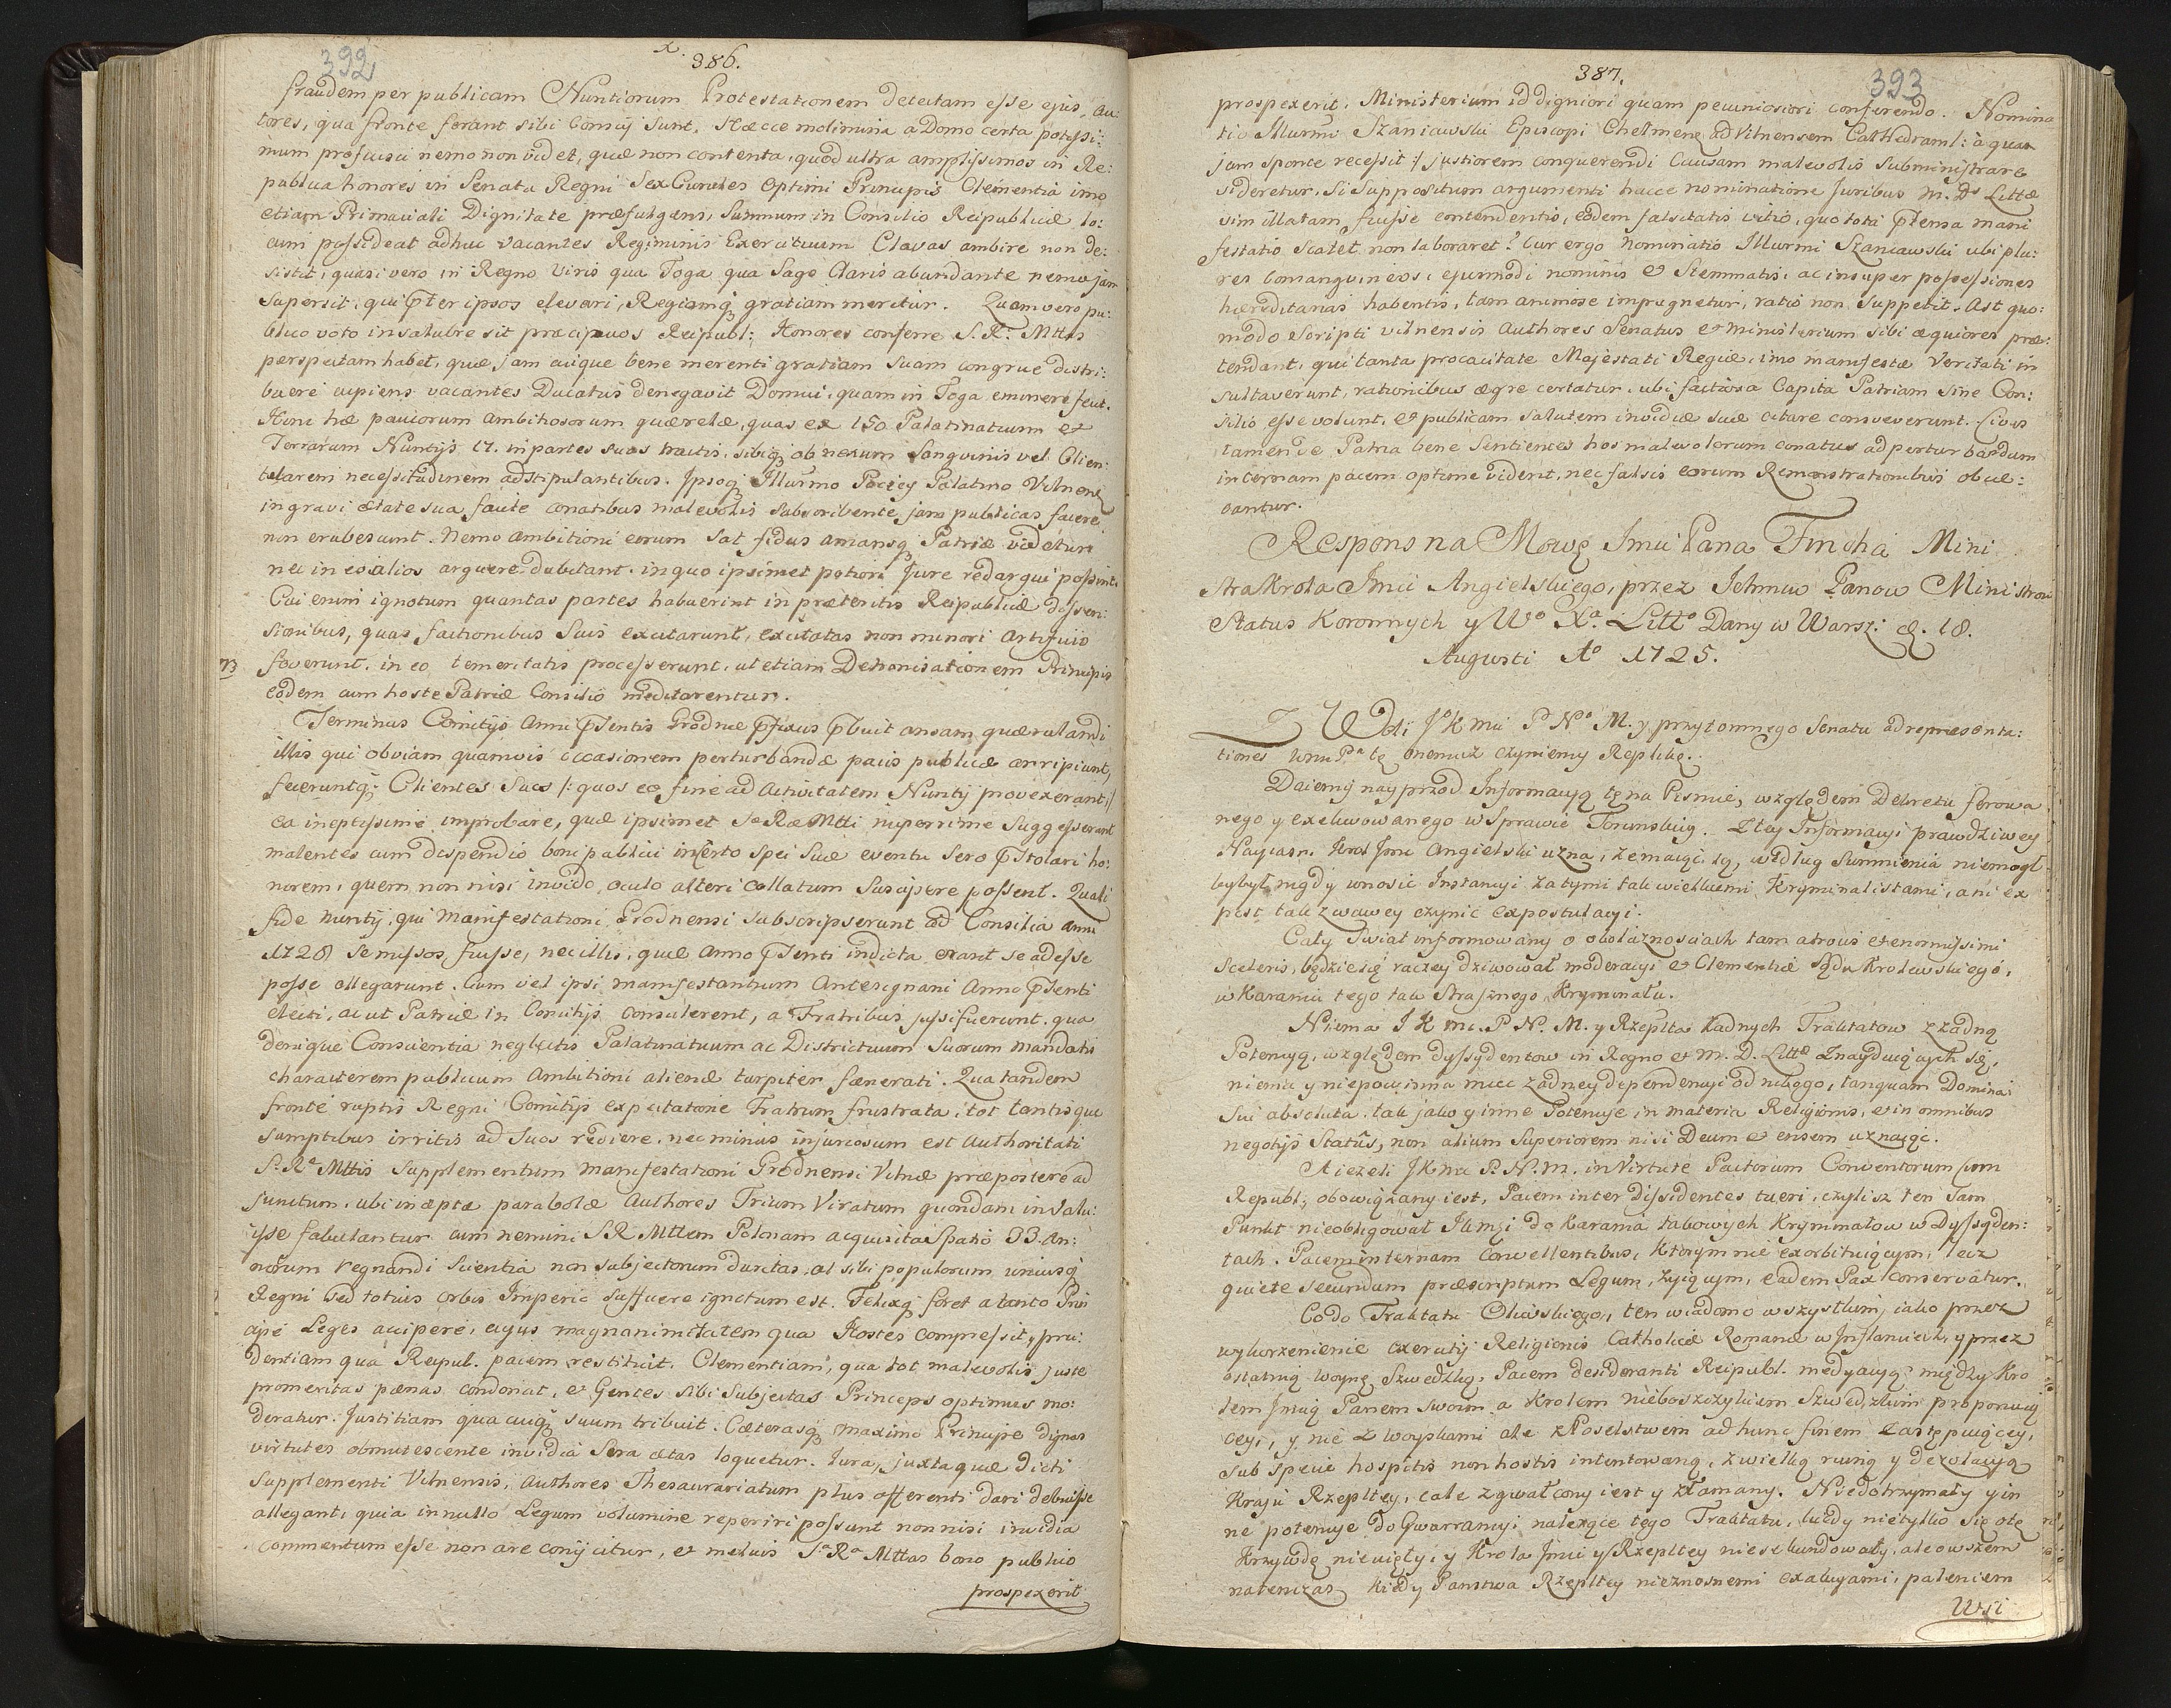 392
386.
fraudem per publicam Nuntiorum Protestationem detectam esse ejus, au:
tores, qua fronte ferant sibi Conscij sunt. Hæcce molimina a Domo certa potissi:
mum proficisci nemo non videt, quæ non contenta, quod ultra amplissimos in Re:
publica honores in Senatu Regni Sex Curules Optimi Principis Clementia imo
etiam Primaciali Dignitate præfulgens, Summum in Consilio Reipublicæ lo:
cum possideat adhuc vacantes Regiminis Exercituum Clavas ambire non de:
sistit, quasi vero in Regno Viris qua Toga qua Sago Claris abundante nemo jam
supersit, qui pter ipsos elevari, Regiamq gratiam meretur. Quam vero pu:
blico voto insalubre sit præcipuos Reipubl: Honores conferre S. Ra Mttas
perspectam habet, quæ jam cuique bene merenti gratiam Suam congrue distri:
buere cupiens vacantes Ducatus denegavit Domui, quam in Toga eminere fecit.
Hinc hæ paucorum ambitiosorum quærelæ, quas ex 150 Palatinatuum et
Terrarum Nuntijs 17. in partes suas tractis, sibiq ob nexum Sanguinis vel Clien:
telarem necessitudinem adstipulantibus. Ipsoq Illurmo Pociey Palatino Vilnen
in gravi ætate sua faute conatibus malevolis subscribente, jam publicas facere
non erubescunt. Nemo ambitioni eorum Sat fidus amansq Patriæ videtur
nec in eo alios arguere dubitant, in quo ipsimet potiori Jure redargui possint.
Cui enim ignotum quantas partes habuerint in præteritis Reipublicæ dissen:
sionibus, quas factionibus Suis excitarunt, excitatas non minori artificio
foverunt, in eo temeritatis processerunt, ut etiam Detronisationem Principis
eodem cum hoste Patriæ Consilio meditarentur.
Terminus Comitijs Anni psentis Grodnæ pfixus pbuit ansam quærulandi
illis qui obviam quamvis occasionem perturbandæ pacis publicæ arripiunt,
feceruntq Clientes Suos /: quos eo fine ad Activitatem Nuntij provexerant :/
ea ineptissime improbare, quæ ipsimet Sæ Ræ Mtti nuperrime Suggesserant
malentes cum dispendio boni publici incerto Spei Suæ eventu Sero pstolari ho:
norem, quem non nisi invido oculo alteri collatum Suscipere possent. Quali
fide nuntij, qui Manifestationi Grodnensi subscripserunt ad Consilia anni
1728 se missos fuisse, nec illis, quæ Anno psenti indicta erant se adesse
posse allegarunt. Cum vel ipsi manifestantium Antesignani Anno psenti
electi, ac ut Patriæ in Comitijs consulerent, a Fratribus jussi fuerunt. qua
denique Conscientia neglectis Palatinatuum ac Districtuum Suorum mandatis
characterem publicum Ambitioni alienæ turpiter fænerati. Qua tandem
fronte ruptis Regni Comitijs expectatione Fratrum frustrata, tot tantisque
sumptibus irritis ad Suos rediere, nec minus injuriosum est Authoritati
S. Ræ Mttis Supplementum manifestationi Grodnensi Vilnæ præpostere ad
junctum, ubi ineptæ parabolæ Authores Trium Viratum quondam invalu:
isse fabulantur cum nemini S R Mttem Polonam acquisita Spatio 33. an:
norum regnandi Scientia non subjectorum duritas, al sibi populorum uniusq
Regni sed totius orbis Imperio sufficere ignotum est. Felixq foret a tanto Prin
cipe Leges accipere, cujus magnanimitatem qua Hostes compressit, pru:
dentiam qua Reipub. pacem restituit. Clementiam, qua tot malevolis juste
promeritas pænas condonat, et Gentes sibi Subjectas Princeps optimus mo:
deratur. Justitiam qua cuiq suum tribuit. Cæterasq maximo Principe dignas
virtutes obmutescente invidia Sera ætas loquetur. Jura, juxta quæ dicti
Supplementi Vilnensis, Authores Thesaurariatum plus offerenti dari debuisse
allegant, quia in nullo Legum volumine reperiri possunt non nisi invidiæ
commentum esse non are conijcitur, et melius Sa Ra Mttas bono publico
prospexerit
393
387.
prospexerit, Ministerium id digniori quam pecuniosiori conferendo. Nomina
tio Illurmi Szaniawski Episcopi Chelmen ad Vilnensem Cathedram /: a qua
jam sponte recessit :/ justiorem conquerendi Causam malevolis Subministrare
videretur, Si Suppositum argumenti hacce nominatione Juribus M. Ds Littæ
vim illatam fuisse contendentis, eodem falsitatis vitio, quo tota ptensa mani
festatio Scatet non laboraret? Cur ergo nominatio Illurmi Szaniawski ubi plu:
res Consanguineos, ejusmodi nominis et Stemmatis, ac insuper possessiones
hæreditarias habentis, tam animose impugnetur, ratio non suppetit. Ast quo:
modo Scripti vilnensis Authores Senatus et ministerium sibi æquiores præ:
tendant, qui tanta procacitate Majestati Regiæ, imo manifestæ Veritati in
sultaverunt, rationibus ægre certatur, ubi factiosa Capita Patriam Sine Con:
silio esse volunt, et publicam salutem invidiæ suæ citare consveverunt. Cives
tamen de Patria bene Sentientes hos malevolorum conatus ad perturbandum
internam pacem optime vident, nec falsis eorum Remonstrationibus obcæ:
cantur.
Respons na Mowę Jmci Pana Fincha Mini
stra Krola Jmci Angielskiego, przez Ichmw Panow Ministrow
Status Koronnych y Wo Xa. Litto Dany w Warsz: d. 18.
Augusti Ao 1725.
Z Woli Jo K mci Po No M. y przytomnego Senatu ad repræsenta:
tiones Wm Pa tę onemuż czyniemy Replikę.
Daiemy nayprzod Informacyą tę na Pismie, względem Dekretu ferowa
nego y exekwowanego w Sprawie Torunskiey. Z tey Informacyi prawdziwey
Nayjasn. Krol Jmc Angielski uzna, że maiąc ią, według Sumnienia niemogł
byłby nigdy wnosic Instancyi za tymi tak wielkiemi Kryminalistami, ani ex
post tak zwawey czynic expostulacyi.
Cały Swiat informowany o okolicznosciach tam atrocis et enormissimi
Sceleris, będzie się raczey dziwował moderacyi et Clementiæ Sądu Krolewskiego,
w Karaniu tego tak strasznego Kryminału.
Niema J K mc. P N. M. y Rzeplta żadnych Traktatow z żadną
Potencyą, względem dyssydentow in Regno et M. D. Littæ Znayduiących się,
niema y niepowinna miec żadney dependencyi od nikogo, tanquam Domina
Sui absoluta. tak jako y inne Potencye in materia Religionis, et in omnibus
negotijs Status, non alium Superiorem nisi Deum et ensem uznaiąc.
A ieżeli J K mc P. N. M. in Virtute Pactorum Conventorum cum
Republ; obowiązany iest, Pacem inter dissidentes tueri, czylisz ten Sam
Punkt nieobligował Jkmci do karania takowych Kryminałow w Dyssyden:
tach. Pacem internam Convellentibus, Ktorym nie exorbituiącym, lecz
quiete secundum præscriptum Legum, żyiącym, eadem Pax conservatur.
Co do Traktatu Oliwskiego, ten wiadomo wszystkim, iako przez
wykorzenienie exercitij Religionis Catholicæ Romanæ w Inflanciech, y przez
ostatnią woynę Szwedzką, Pacem desideranti Reipubl. medyacyą między Kro
lem Jmcią Panem Swoim a Krolem nieboszczykiem Szwedzkim proponuią
cey, y nie z woyskami ale z Poselstwem ad hunc finem Zastępuiącey,
sub specie hospitis non hostis intentowaną, z wielką ruiną y dezolacyą
Kraju Rzepltey, cale zgwałcony iest y złamany. Niedotrzymały y in
ne potencye do Gwarrancyi należące tego Traktatu, kiedy nietylko się o tę
Krzywdę nieuięły, y Krola Jmci y Rzepltey niesekundowały, ale owszem
natenczas kiedy Panstwa Rzepltey nieznosnemi exakcyami, paleniem
Wsi